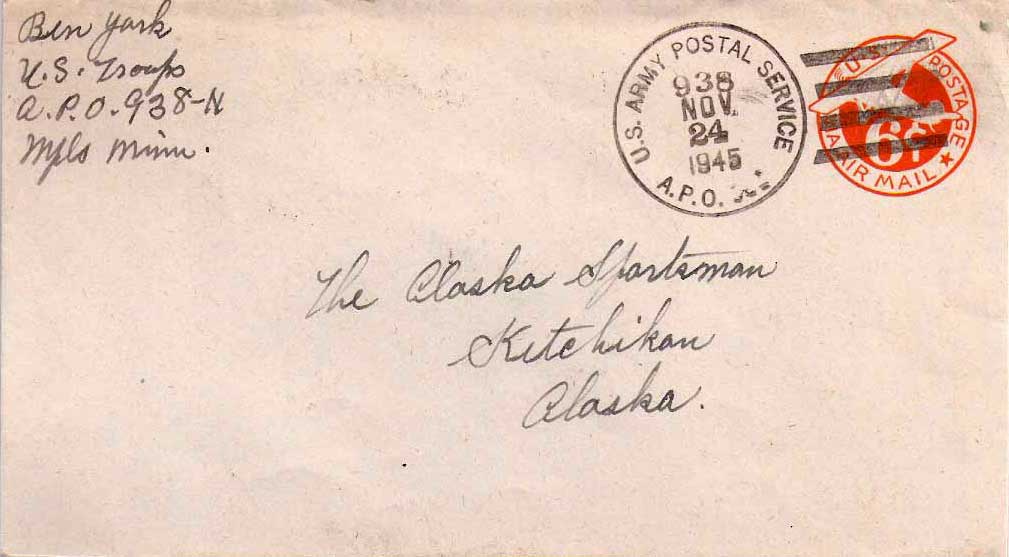 Ben York
U.S. Troops
A.P.O. 938-N
Mpls Minn.
U.S. ARMY POSTAL SERVICE
938
NOV
24
1945
A.P.O.
U.S. POSTAGE
6¢
VIA AIR MAIL
The Alaska Sportsman
Ketchikan
Alaska.